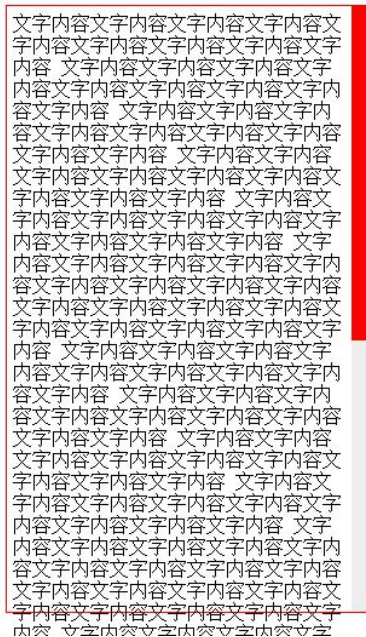 文字内容文字内容文字内容文字内容文
字内容文字内容文字内容文字内容文字
内容 文字内容文字内容文字内容文字
内容文字内容文字内容文字内容文字内
容文字内容 文字内容文字内容文字内
容文字内容文字内容文字内容文字内容
文字内容文字内容 文字内容文字内容
文字内容文字内容文字内容文字内容文
字内容文字内容文字内容 文字内容文
字内容文字内容文字内容文字内容文字
内容文字内容文字内容文字内容 文字
内容文字内容文字内容文字内容文字内
容文字内容文字内容文字内容文字内容
文字内容文字内容文字内容文字内容文
字内容文字内容文字内容文字内容文字
内容 文字内容文字内容文字内容文字
内容文字内容文字内容文字内容文字内
容文字内容 文字内容文字内容文字内
容文字内容文字内容文字内容文字内容
文字内容文字内容 文字内容文字内容
文字内容文字内容文字内容文字内容文
字内容文字内容文字内容 文字内容文
字内容文字内容文字内容文字内容文字
内容文字内容文字内容文字内容 文字
内容文字内容文字内容文字内容文字内
容文字内容文字内容文字内容文字内容
文字内容文字内容文字内容文字内容文
字内容文字内容文字内容文字内容文字
内容 文字内容文字内容文字内容文字